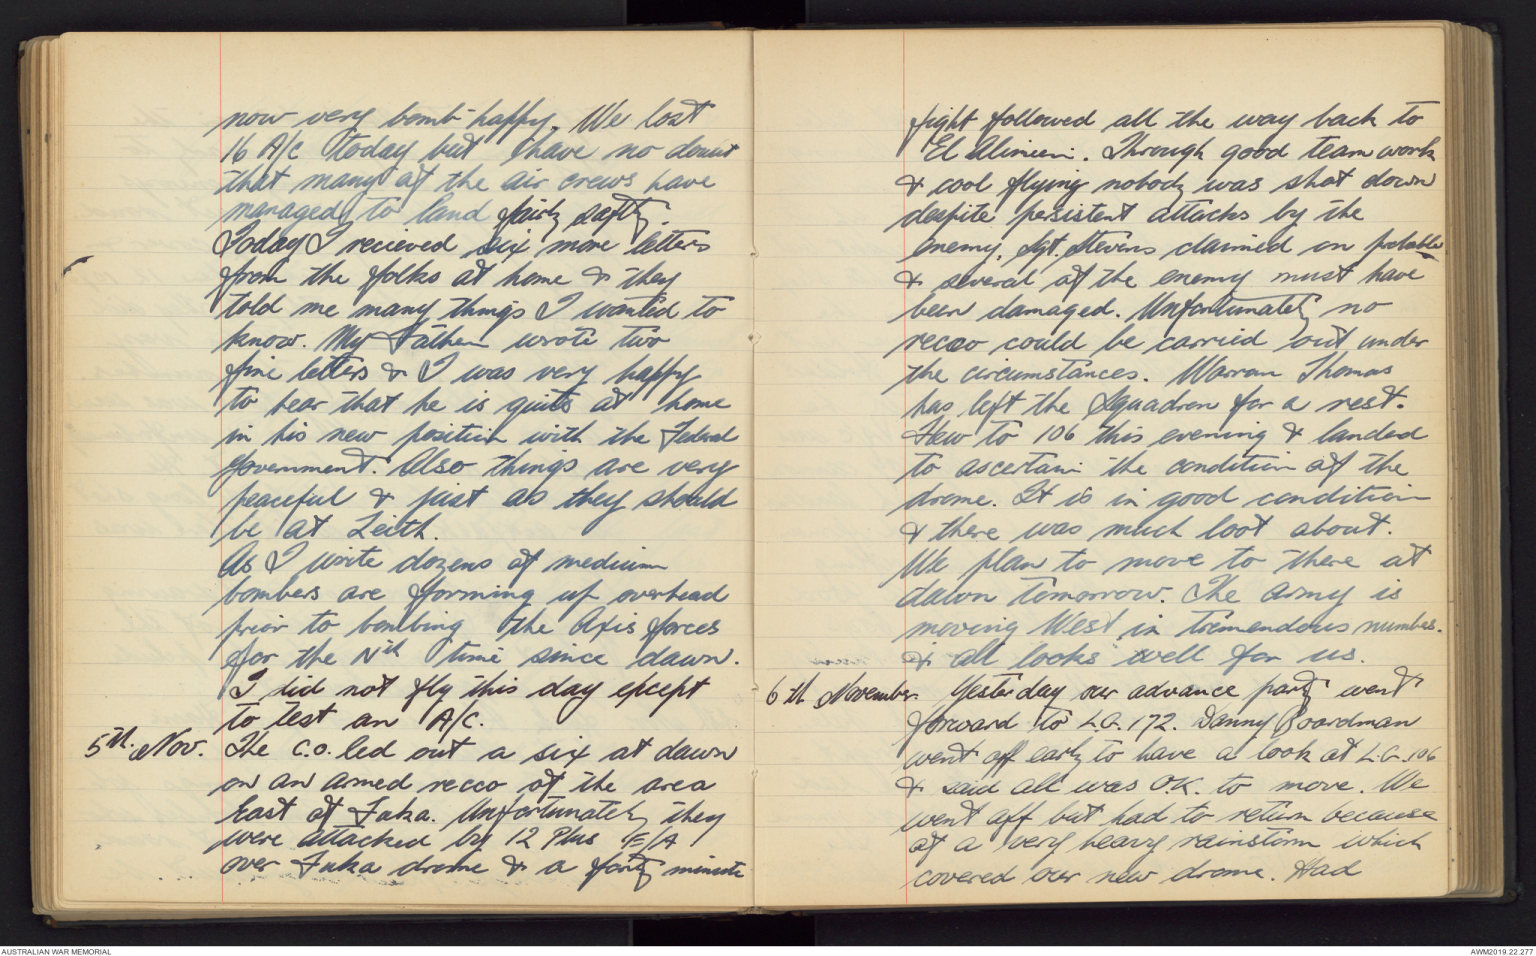 now very bomb-happy. We lost
16 A/c today but I have no doubt
that many of the air crews have
managed to land fairly saftly.
Today I recieved six more letters
from the folks at home & they
told me many things I wanted to
know. My Father wrote two
fine letters & I was very happy
to hear that he is quite at home
in his new position with the Federal
Government. Also things are very
peaceful & just as they should
be at Leith.
As I write dozens of medium
bombers are forming up overhead
prior to bombing the Axis forces
for the Nth time since dawn.
I did not fly this day except
to test an A/c.
5th. Nov. The C.O. led out a six at dawn
on an armed recco of the area
East of Fuka. Unfortunately they
were attacked by 12 Plus E/A
over Fuka drome & a forty minute
fight followed all the way back to
El Alimein. Through good team work
& cool flying nobody was shot down
despite persistent attacks by the
enemy. Sgt. Stevens claimed on probable
& several of the enemy must have
been damaged. Unfortunately no
recco could be carried out under
the circumstances. Warran Thomas
has left the Squadron for a rest.
Flew to 106 this evening & landed
to ascertain the condition of the
drome. It is in good condition
& there was much loot about.
We plan to move to there at
dawn tomorrow. The Army is
moving West in tremendous number.
& all looks well for us.
6th November. Yesterday our advance party went
forward to L.G. 172. Danny Boardman
went off early to have a look at L.G. 106
& said all was O.K. to move. We
went off but had to return because
of a very heavy rainstorm which
covered our new drome. Had
AUSTRALIAN WAR MEMORIAL
AWM2019.22.277